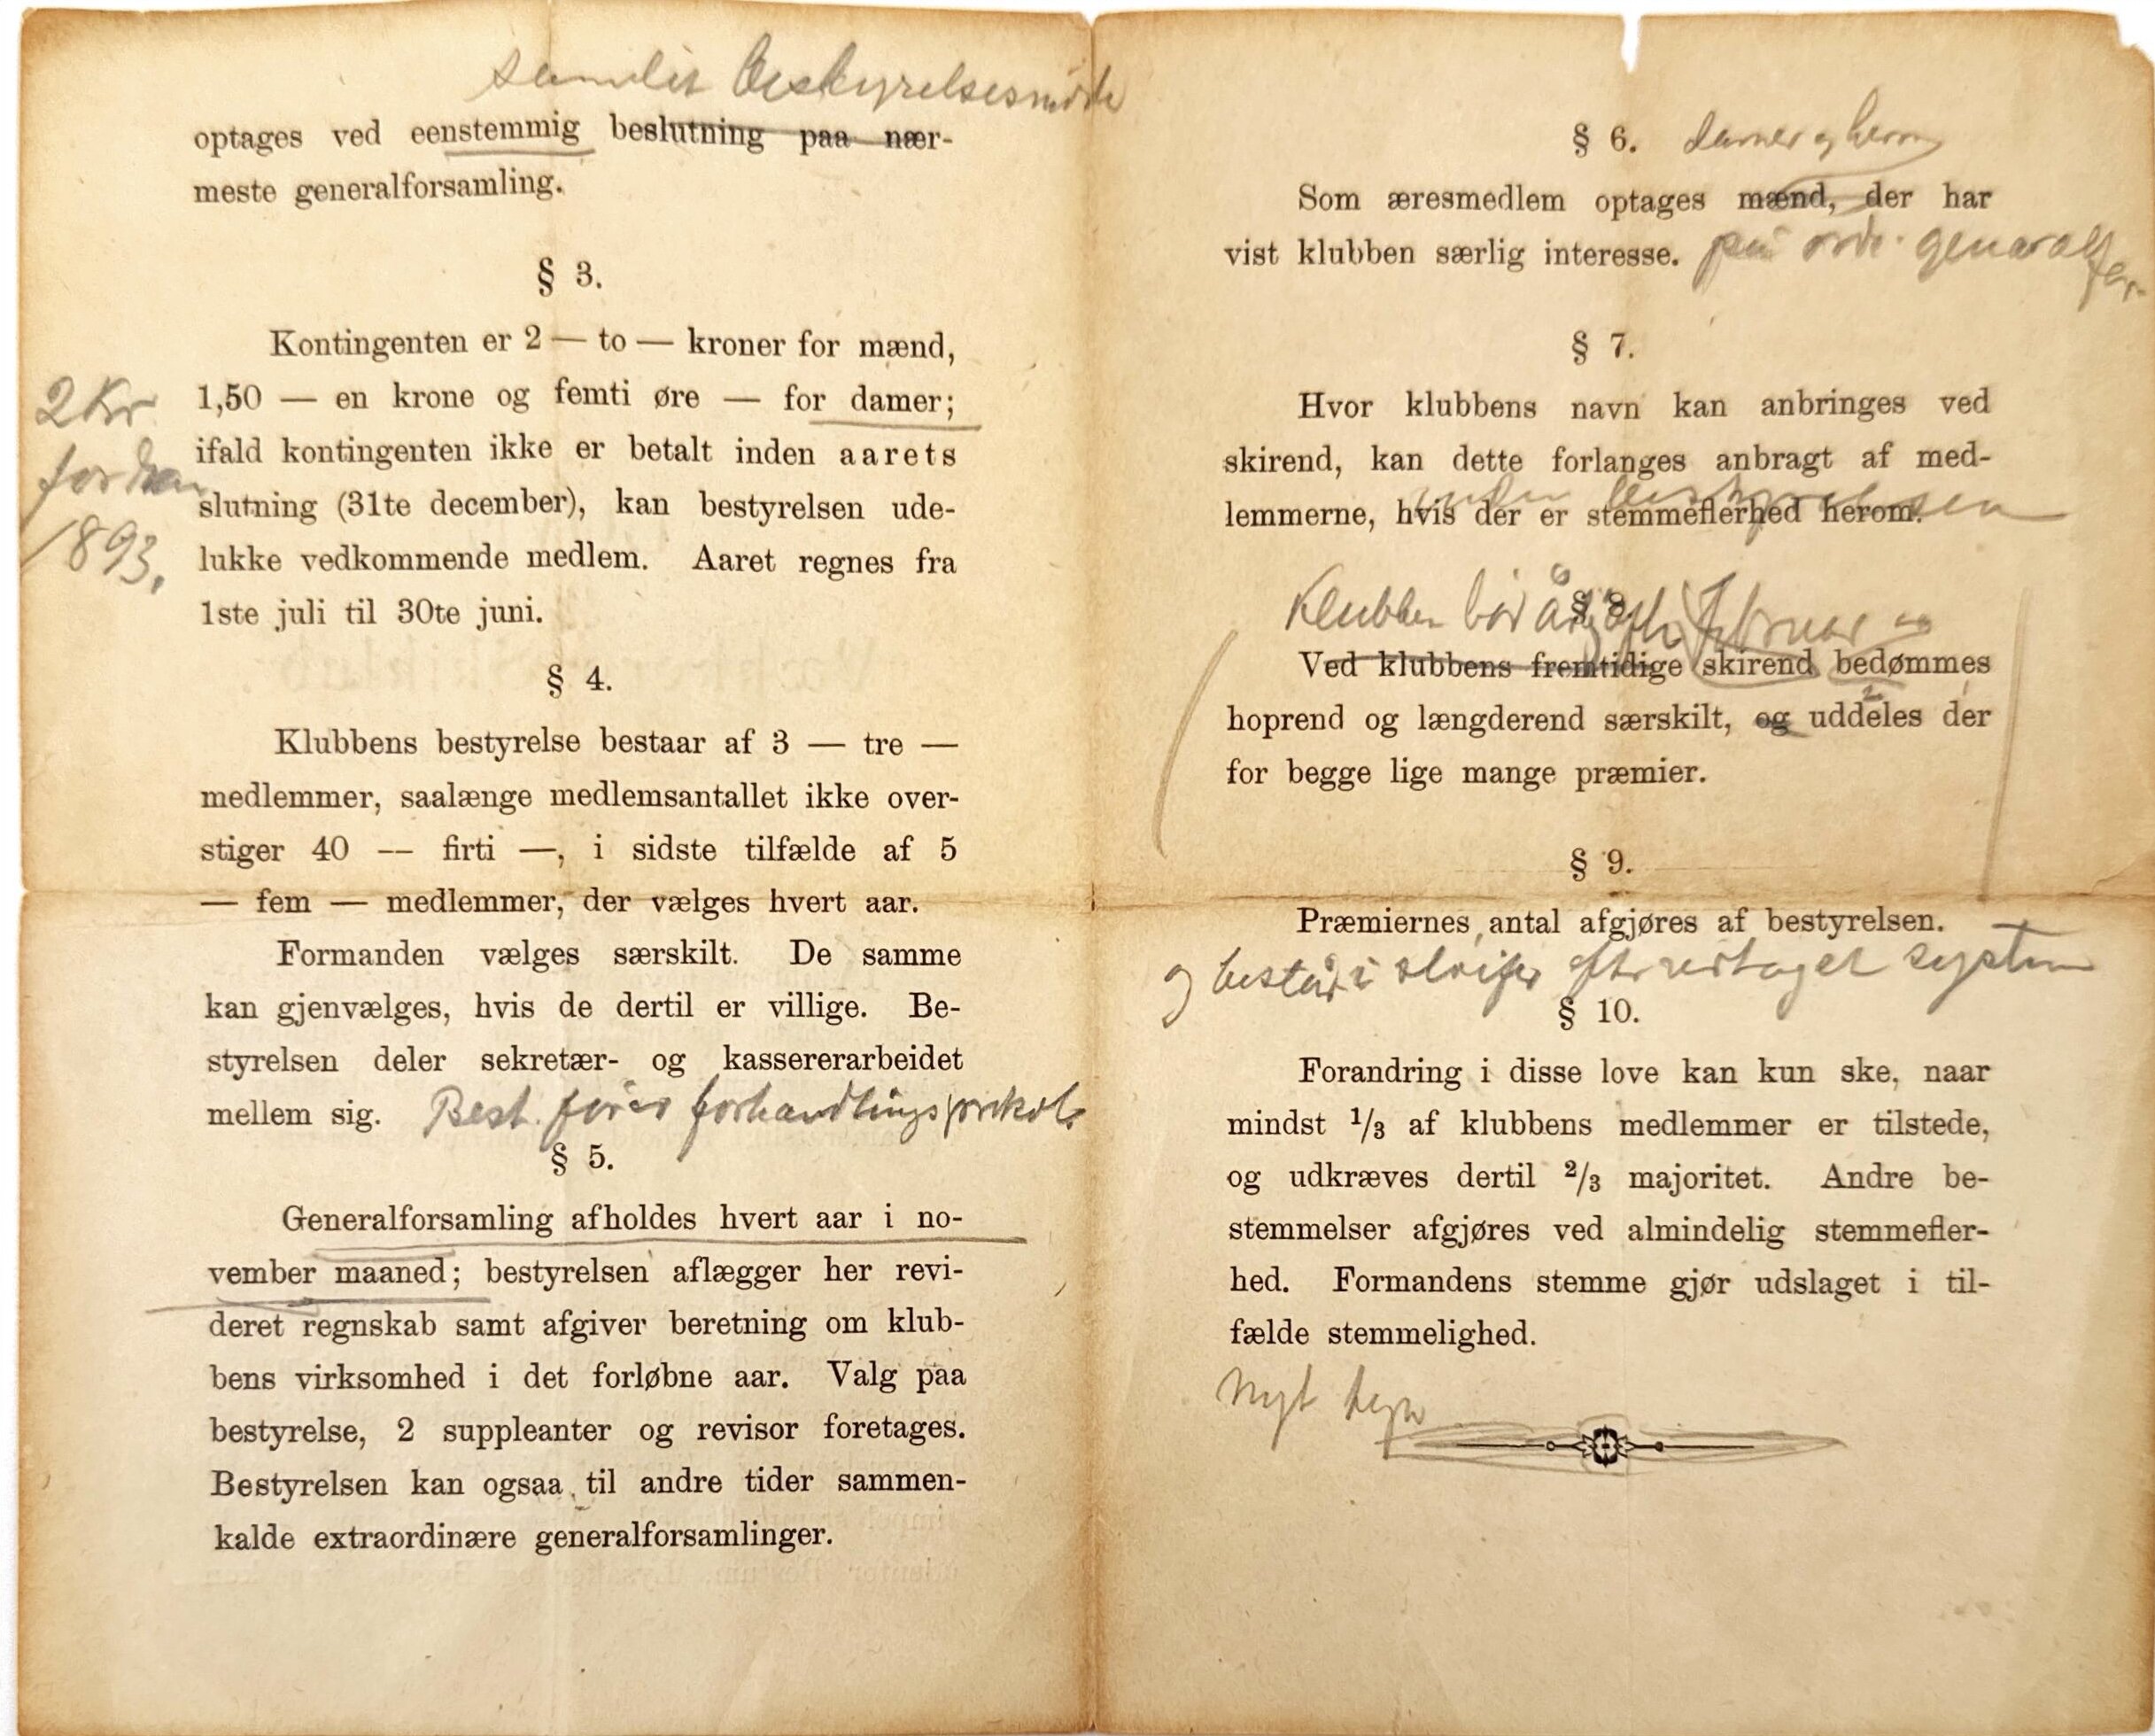 samlet bestyrelsesmøde
optages ved eenstemmig beslutning paa nær-
meste generalforsamling.
§ 3.
Kontingenten er 2 — to — kroner for mænd,
2 Kr
1,50 — en krone og femti øre — for damer;
ifald kontingenten ikke er betalt inden aarets
for
slutning (31te december), kan bestyrelsen ude-
1893.
lukke vedkommende medlem. Aaret regnes fra
1ste juli til 30te juni.
§ 4.
Klubbens bestyrelse bestaar af 3 — tre —
medlemmer, saalænge medlemsantallet ikke over-
stiger 40 — firti —, i sidste tilfælde af 5
— fem — medlemmer, der vælges hvert aar.
Formanden vælges særskilt. De samme
kan gjenvælges, hvis de dertil er villige. Be-
styrelsen deler sekretær- og kassererarbeidet
mellem sig. Best. fører forhandlingsprokol.
§ 5.
Generalforsamling afholdes hvert aar i no-
vember maaned; bestyrelsen aflægger her revi-
deret regnskab samt afgiver beretning om klub-
bens virksomhed i det forløbne aar. Valg paa
bestyrelse, 2 suppleanter og revisor foretages.
Bestyrelsen kan ogsaa til andre tider sammen-
kalde extraordinære generalforsamlinger.
§ 6. damer og herrer
Som æresmedlem optages mænd, der har
vist klubben særlig interesse. på ord. generalfor.
§ 7.
Hvor klubbens navn kan anbringes ved
skirend, kan dette forlanges anbragt af med-
inden bestyrelsen
lemmerne, hvis der er stemmeflerhed herom.
§ 8.
Klubben bør februar
Ved klubbens fremtidige skirend bedømmes
hoprend og længderend særskilt, og uddeles der
for begge lige mange præmier.
§ 9.
Præmiernes antal afgjøres af bestyrelsen.
og består i sløifer efter vedtaget system
§ 10.
Forandring i disse love kan kun ske, naar
mindst 1/3 af klubbens medlemmer er tilstede,
og udkræves dertil 2/3 majoritet. Andre be-
stemmelser afgjøres ved almindelig stemmefler-
hed. Formandens stemme gjør udslaget i til-
fælde stemmelighed.
Nyt